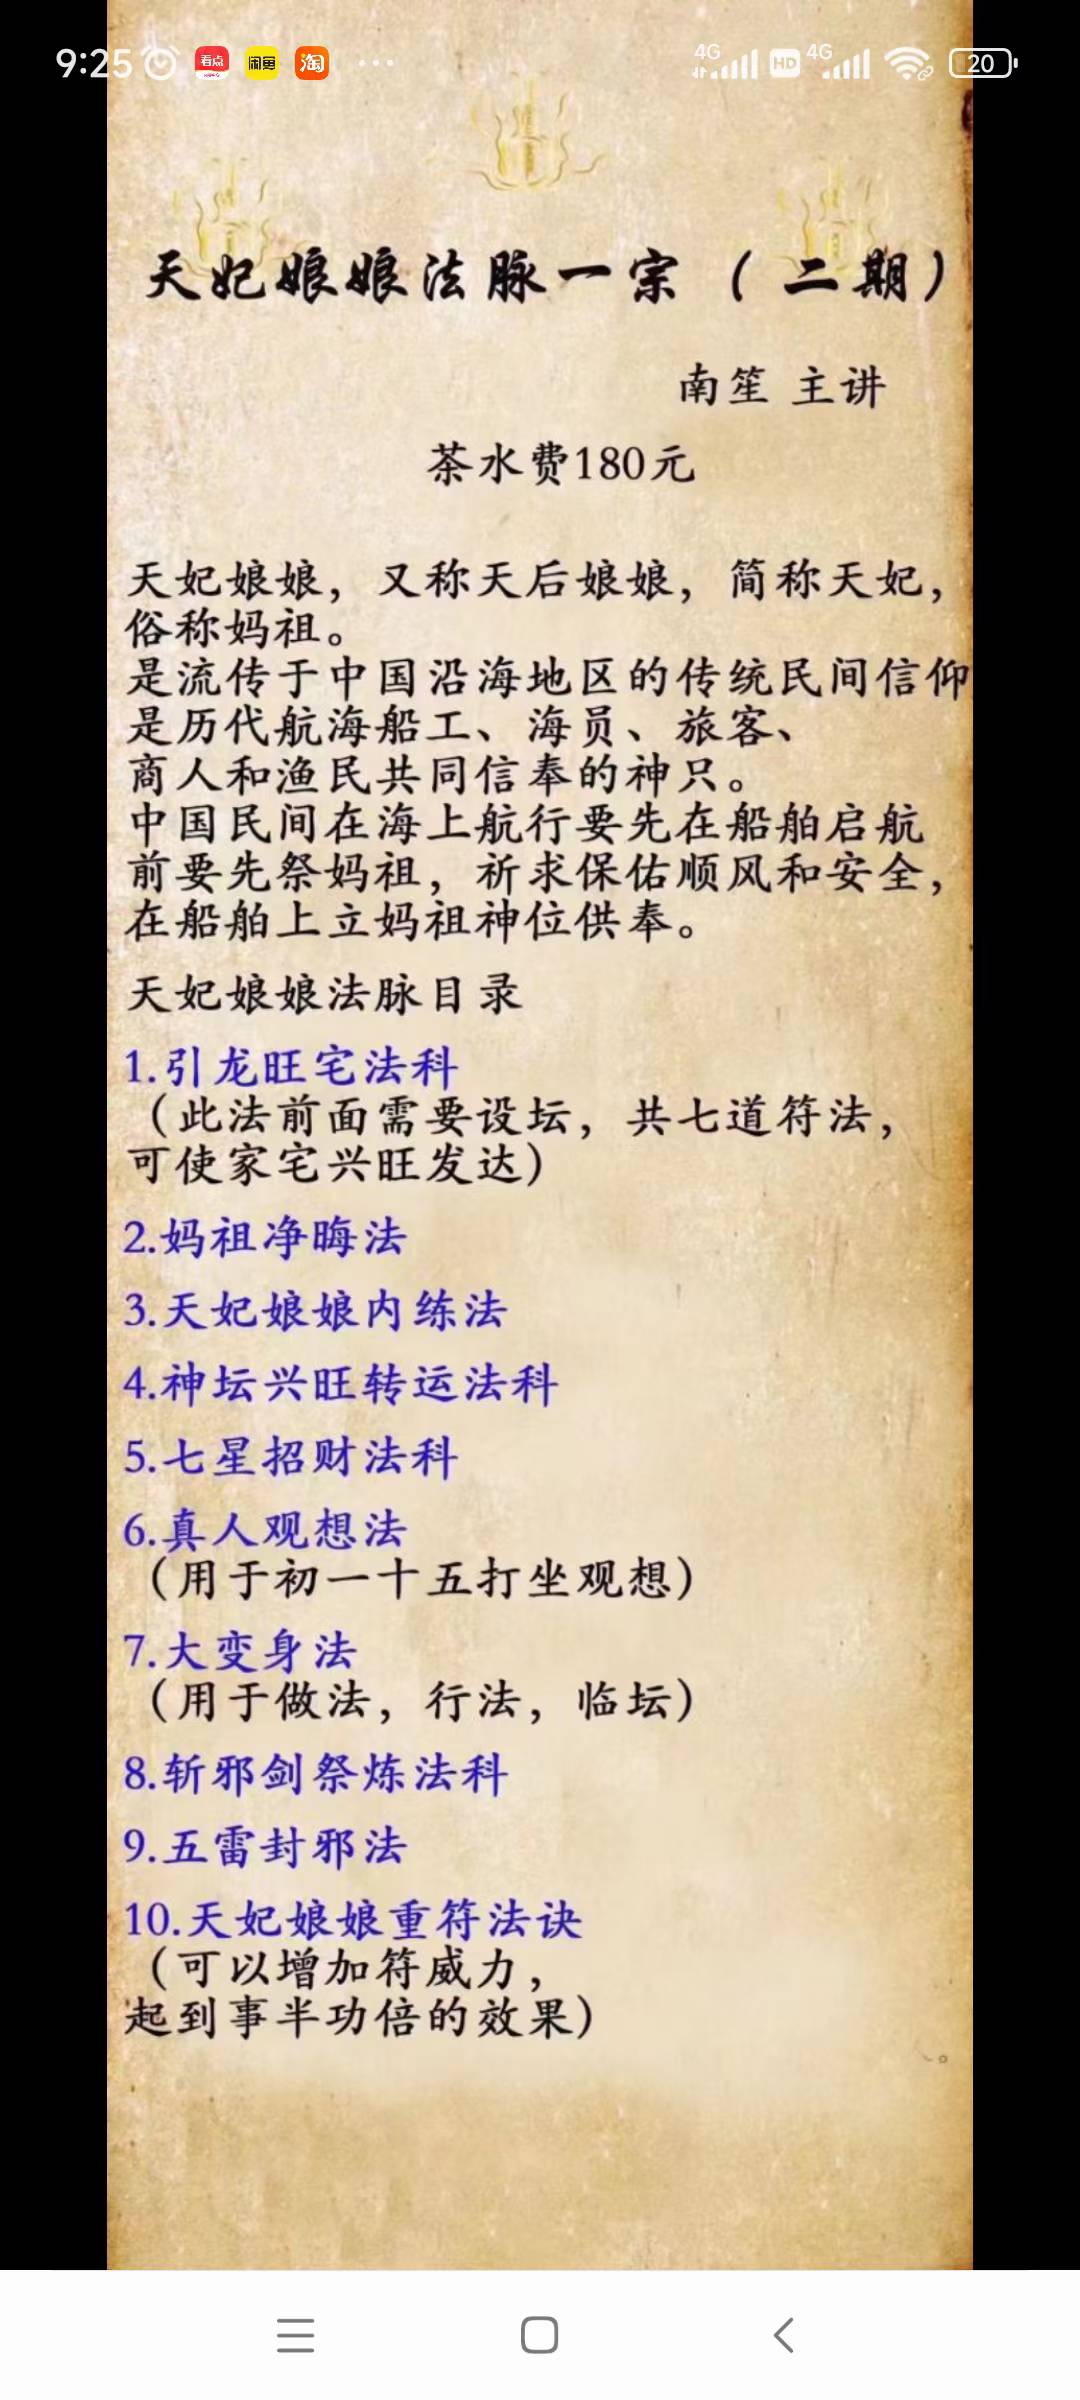 9:25
看点
闲鱼
淘
4G
HD
4G
20
天妃娘娘法脉一宗（二期）
南笙 主讲
茶水费180元
天妃娘娘，又称天后娘娘，简称天妃，
俗称妈祖。
是流传于中国沿海地区的传统民间信仰
是历代航海船工、海员、旅客、
商人和渔民共同信奉的神只。
中国民间在海上航行要先在船舶启航
前要先祭妈祖，祈求保佑顺风和安全，
在船舶上立妈祖神位供奉。
天妃娘娘法脉目录
1.引龙旺宅法科
（此法前面需要设坛，共七道符法，
可使家宅兴旺发达）
2.妈祖净晦法
3.天妃娘娘内练法
4.神坛兴旺转运法科
5.七星招财法科
6.真人观想法
（用于初一十五打坐观想）
7.大变身法
（用于做法，行法，临坛）
8.斩邪剑祭炼法科
9.五雷封邪法
10.天妃娘娘重符法诀
（可以增加符威力，
起到事半功倍的效果）